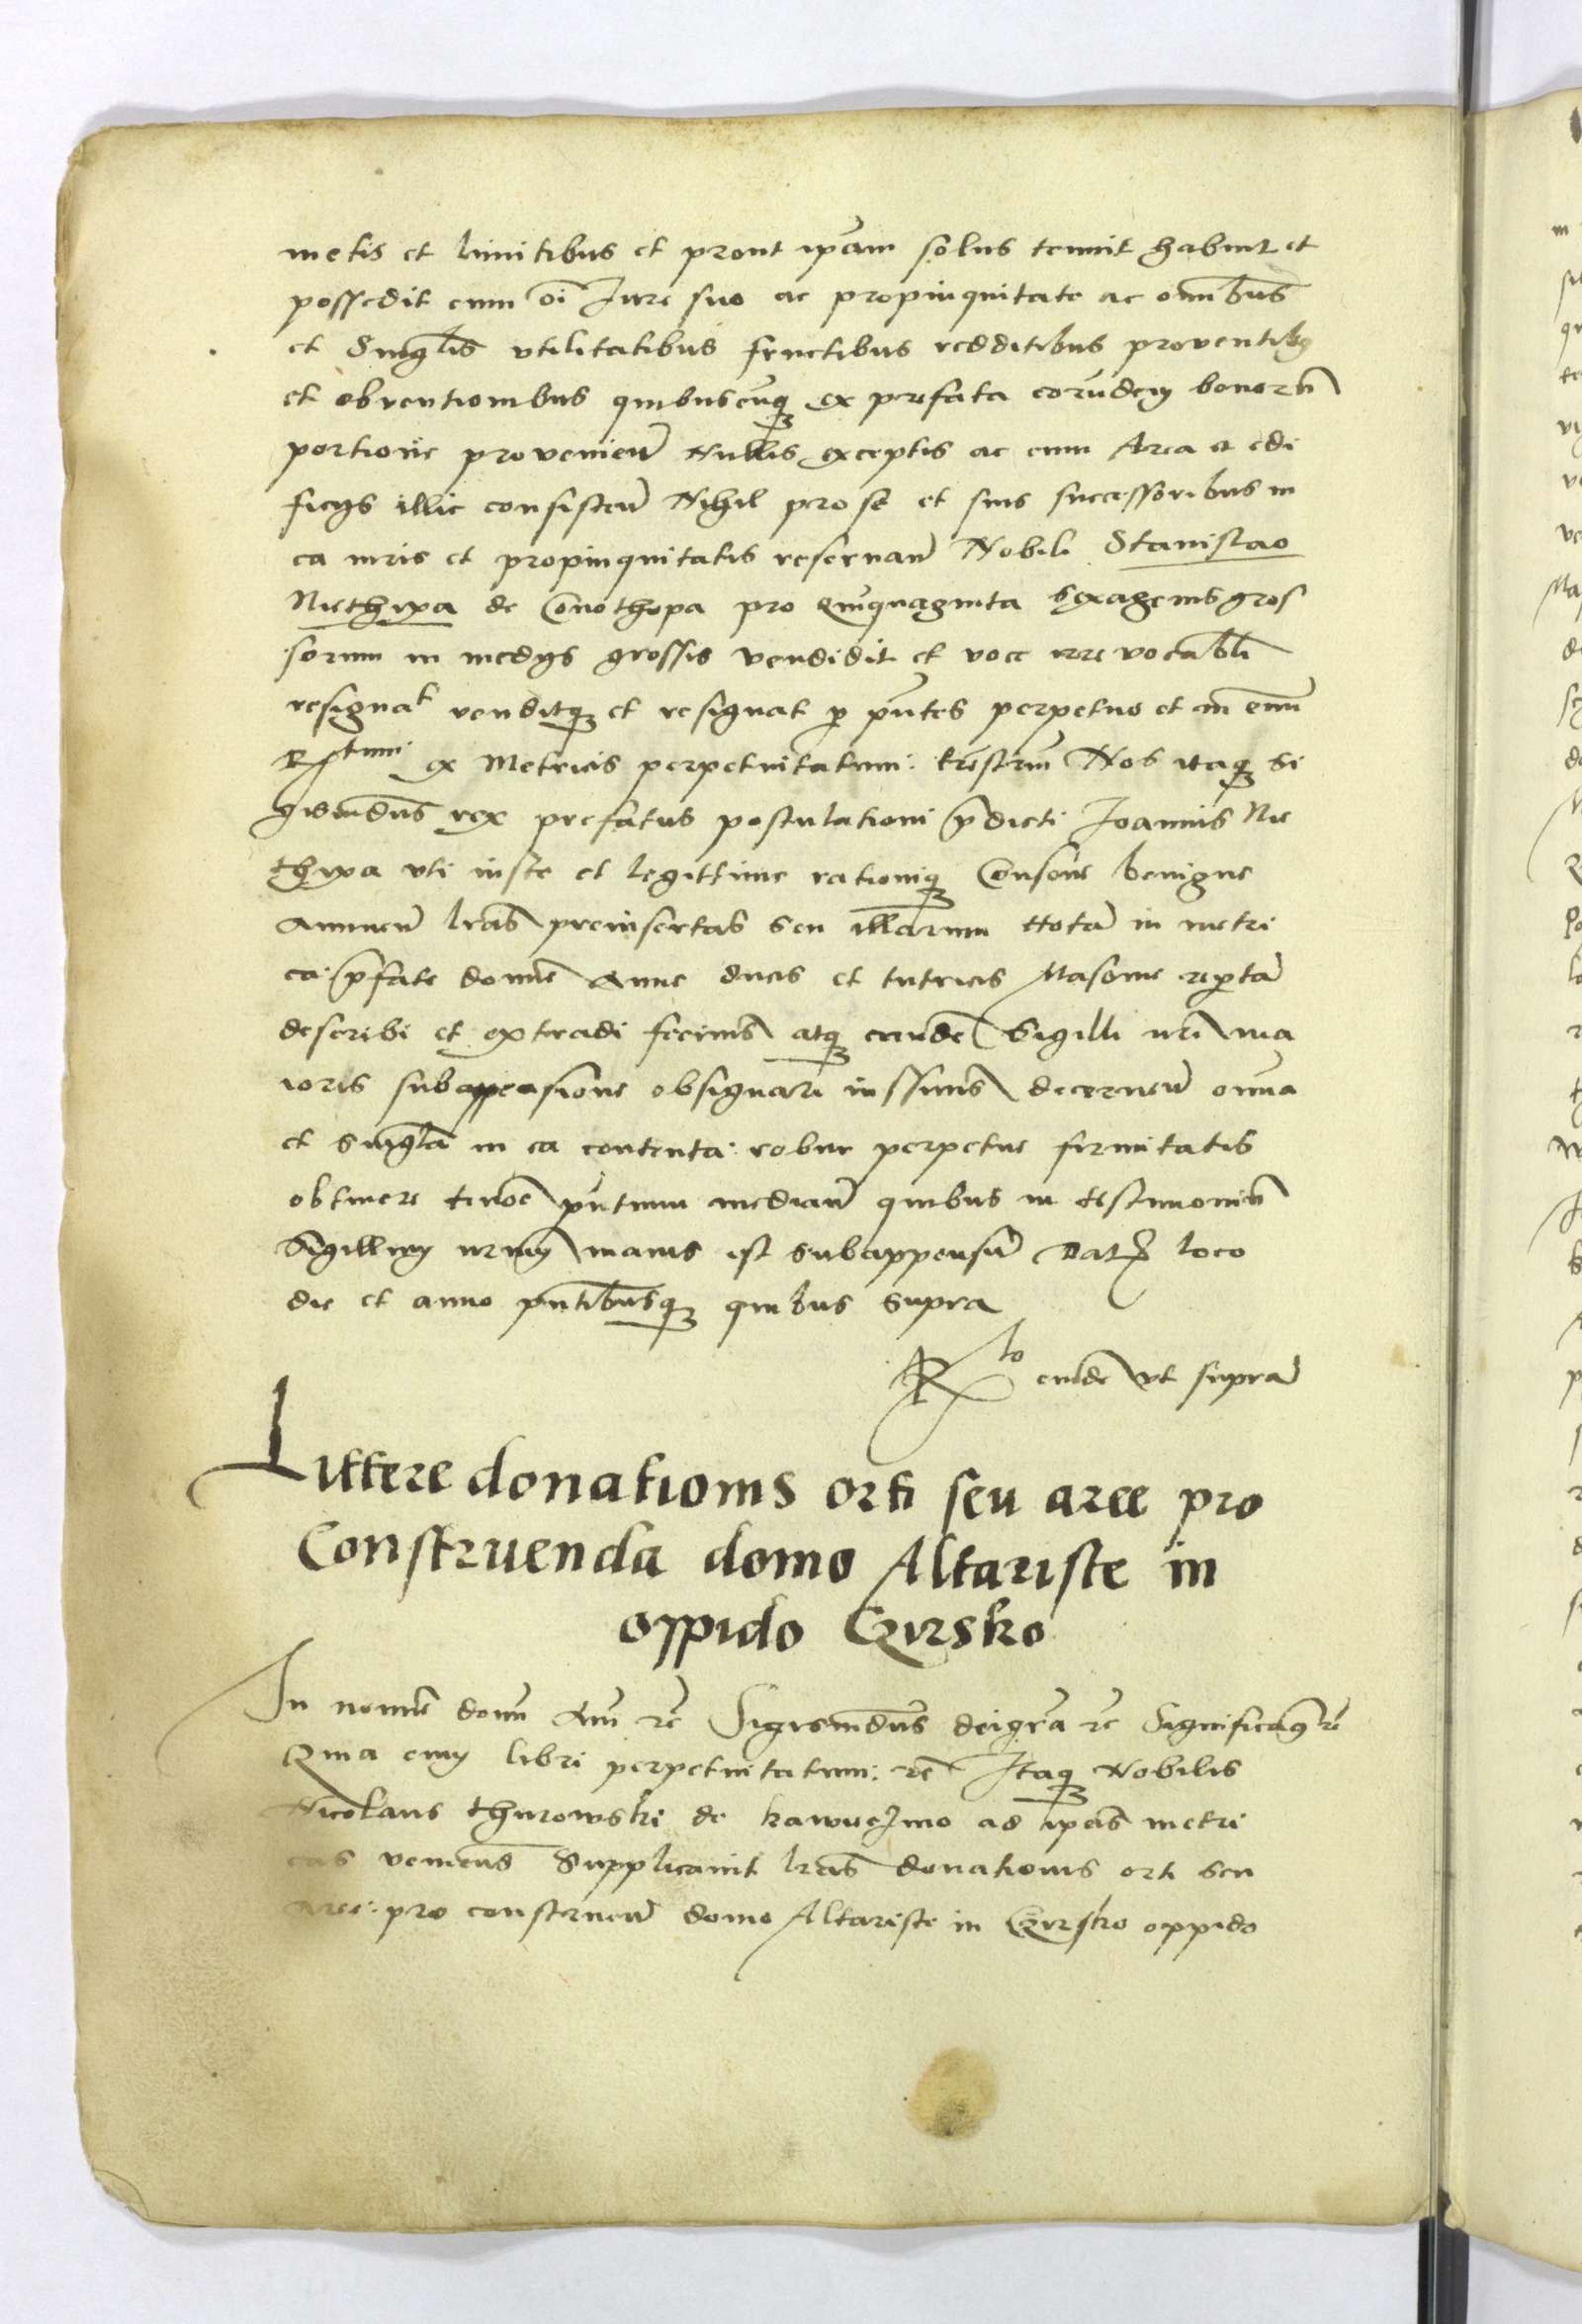 metis et limitibus et prout ip̄am solus tenuit habuit et
possedit cum oī Iure suo ac propinquitate ac omībus
et Singl̄is vtilitatibus fructibus redditibus proventibꝫ
et obventionibus quibuscūqꝫ ex prefata eorūdem bonorū
portione provenień Nullis exceptis ac cum Area et edi
ficys illic consisteń Nihil pro se et suis successoribus in
ea iuris et propinquitatis reservań Nobili Stanislao
Niethixa de Conothopa pro Quīquaginta sexagenis gros
sorum in medys grossis vendidit et voce irrevocabl̄i
resignat venditqꝫ et resignat ꝑ pn̄tes perpetuo et in
Rtum ex Metricis perpetuitatum terrestriū Nos itaqꝫ Si
gismūdus rex prefatus postulationi p̄dicti Joannis Nie
thixa vti iuste et legittime rationiqꝫ Consone benigne
Annueń lr̄as preinsertas seu illarum Notā in metri
ca p̄fate domīe Anne ducis et tutricis Masovie rep̄tā
describi et extradi fecimus atqꝫ eandē Sigilli nr̄i ma
ioris subappensione obsignari iussimus decerneń omnia
et singl̄a in ea contenta robur perpetue firmitatis
obtinere tenōe pn̄tium mediań quibus in testimoniū
Sigillum nr̄um maius est subappensū Dat loco
die et anno pn̄tibusqꝫ quibus supra
Rlo eiusdē vt supra
Littere donationis orti seu aree pro
Construenda domo Altariste in
oppido Czirsko
In nomīe domī Am̄ rc̄ Sigismūdus deigr̄a rc̄ Significam̄ rc̄
Quia cum libri perpetuitatum rc̄ Itaqꝫ Nobilis
Nicolaus thurowski de kawęczino ad ip̄as metri
cas veniens Supplicavit lr̄as donationis orti seu
aree pro construeń domo Altariste in Czirsko oppido